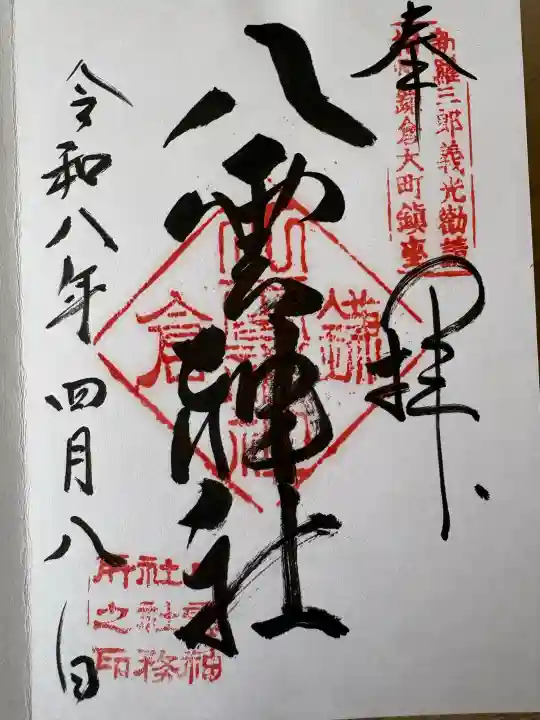 奉拝
新羅三郎義光勧請
鎌倉大町鎮座
八雲神社
鎌倉
八雲神社
令和八年 四月八日
八雲神
社社務
所之印